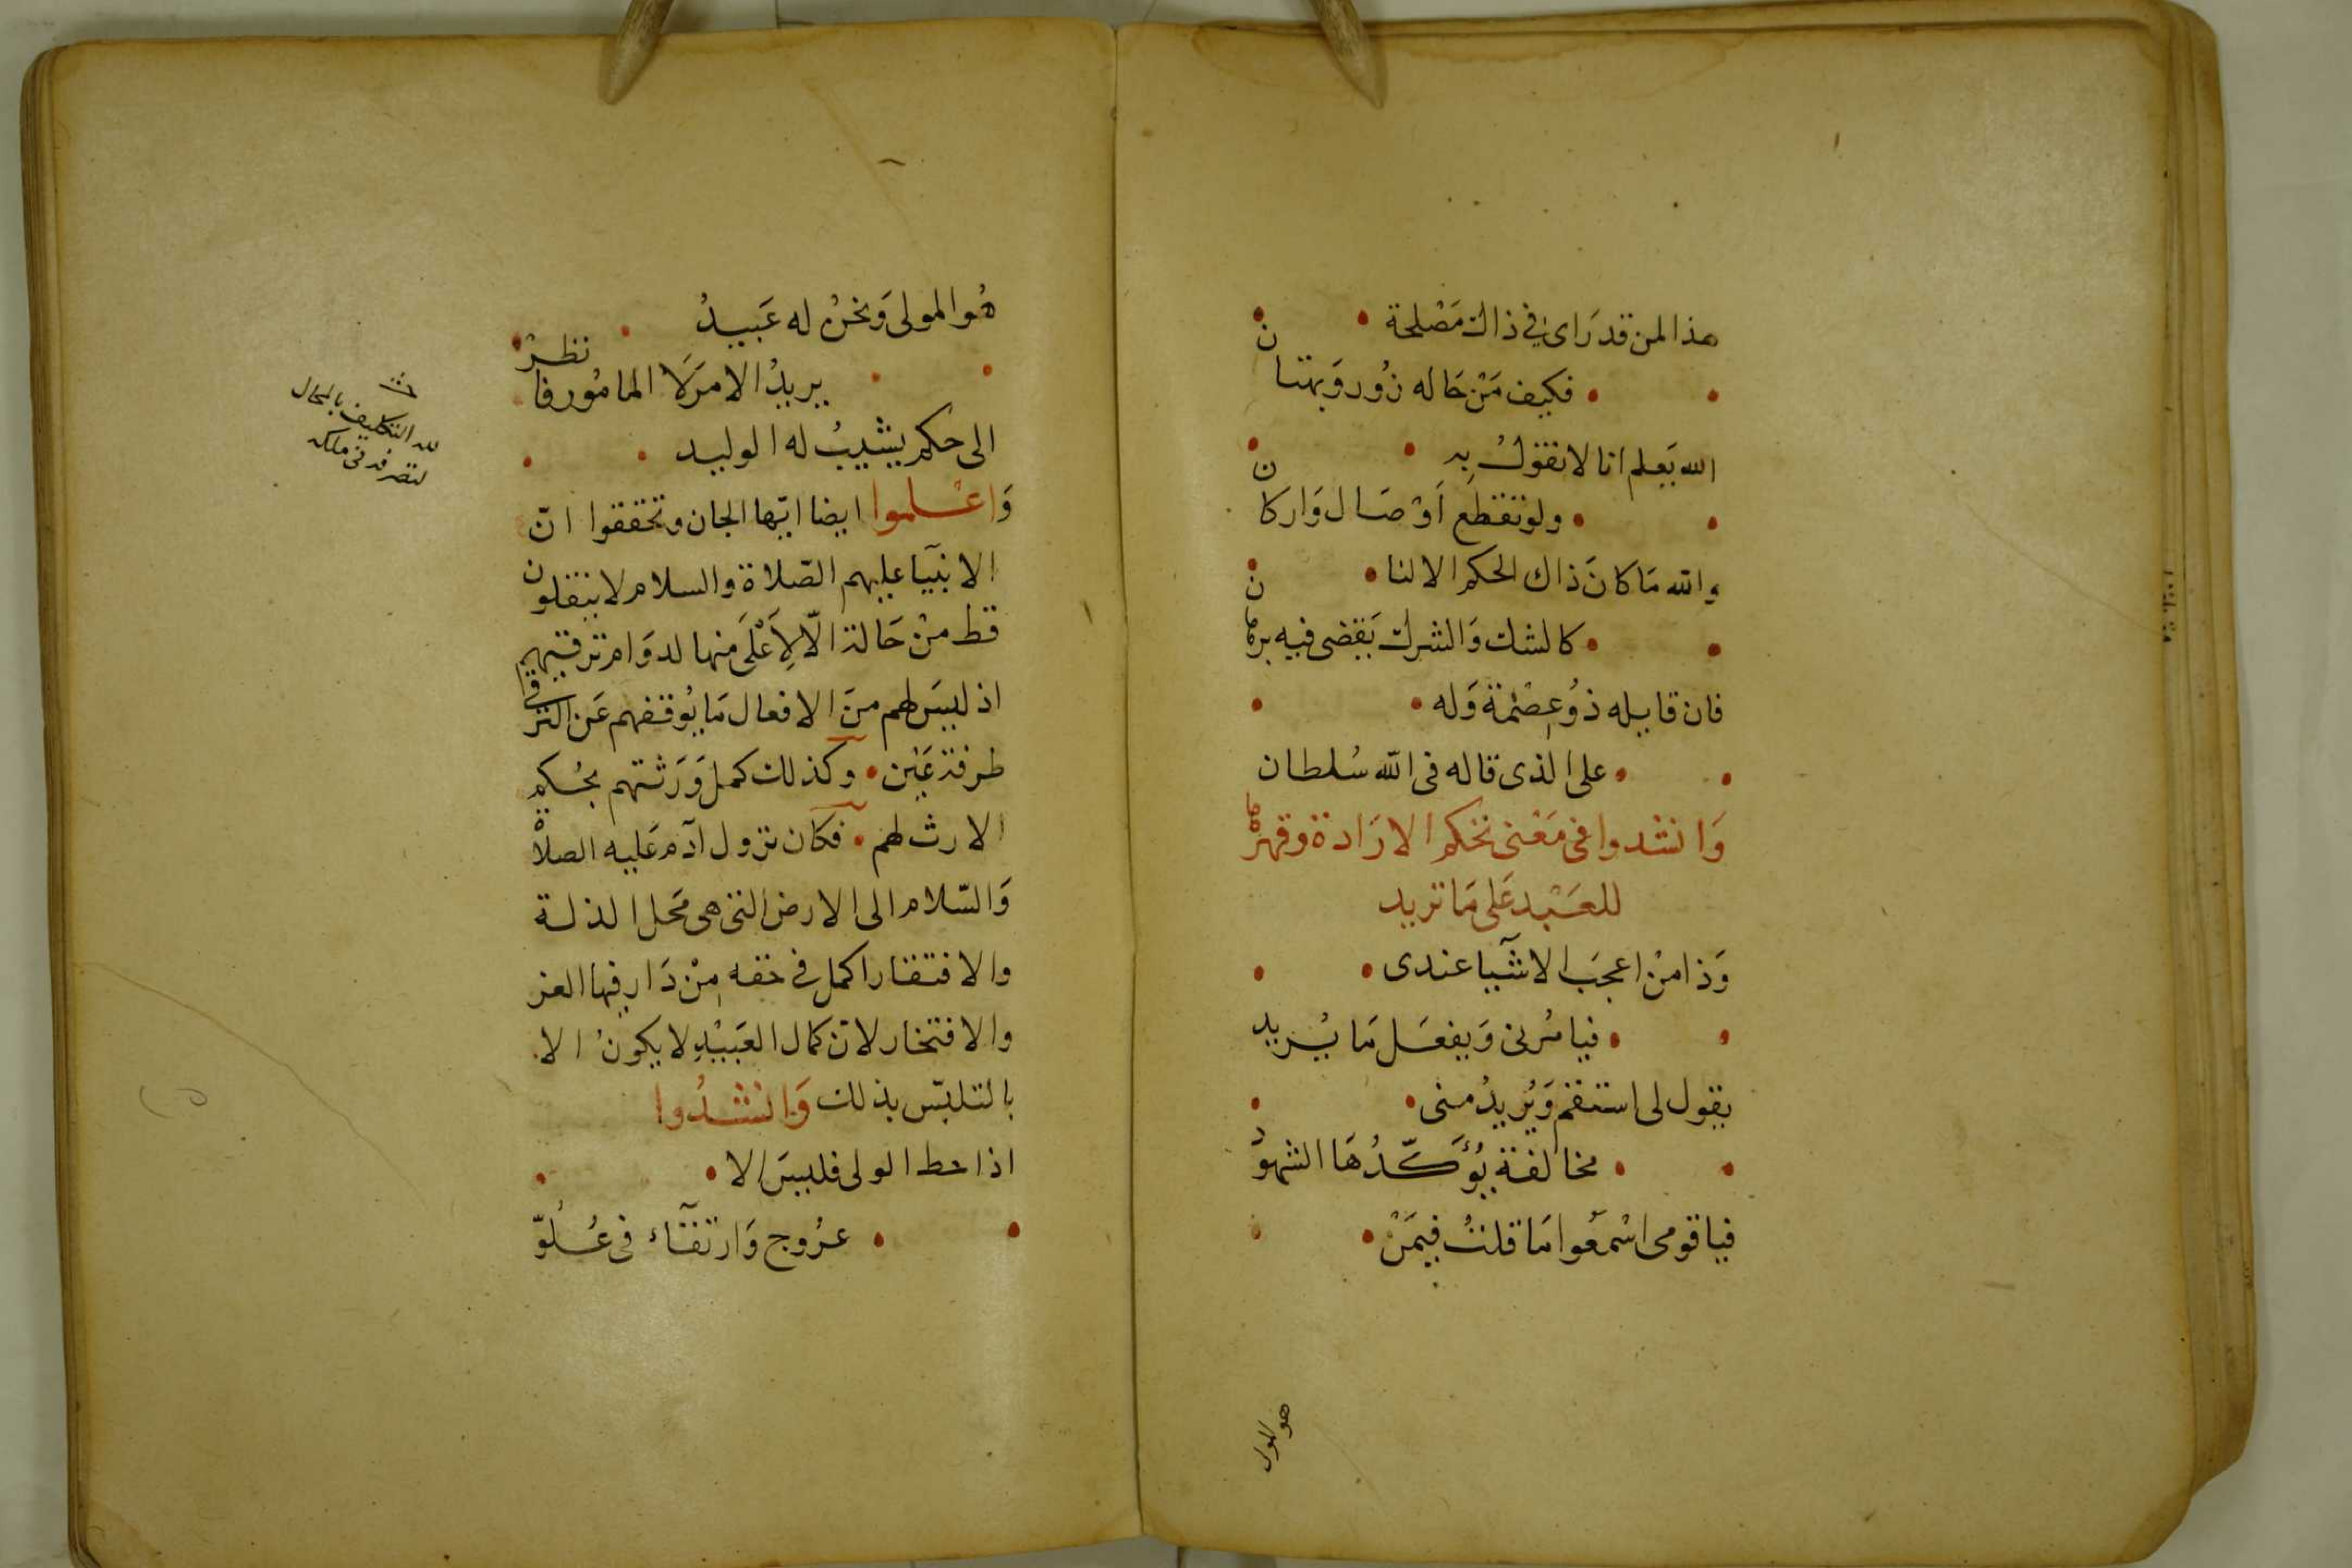 هذا لمن قد رَاى في ذاك مَصْلحة
فكيف مَنْ حَاله زُور وَبهتان
الله يَعلم انا لا نقولُ به
ولو تقطع اَوْصَال وَاركان
والله مَا كانَ ذاك الحكم الا لنا
كالشك وَالشرك يَقضى فيه برهان
فان قايله ذوُ عِصْمة وَله
على الذى قاله فى الله سُلطان
وَانشدوا فى مَعْنى تحكم الارَادة وقهرها
للعَبْد عَلى مَا تريد
وَذا مِنْ اعجَب الاشيآ عندى
فيامُرنى وَيفعَل مَا يُريد
يقول لى استقم وَيُريدُ منى
مخالفة يُؤَكّدُهَا الشهوُد
فيا قومى اسْمعُوا مَا قلتُ فيمَنْ
هو المولى
هُوا لمولى وَنحنُ له عَبيدُ
يريدُ الامرَ لَا المامُور فانظرْ
الى حكم يشيبُ له الوليد
وَاعْلموا ايضا ايّها الجان وتحققوا انّ
الانبيآ عليهم الصّلاة والسلام لا ينتقلون
قط مِنْ حَالة الّا لِأَعْلَى منها لدوَام ترقيتهم
اذ ليسَ لهم مِنَ الافعال مَا يُوقفهم عَن الترقى
طرفة عَيْن وكذلك كمل وَرَثتهم بحُكم
الارث لهم فكان نزول آدم عَليه الصلاة
وَالسّلام الى الارض التى هى مَحل الذلة
والافتقار اكمل في حقه مِنْ دَار فيها العز
والافتخار لانّ كمال العَبيْدِ لا يكونُ الا
بالتلبّس بذلك وَانشدُوا
اذا حط الولى فليسَ الا
عرُوج وَارتقآء فى عُلُوّ
لله التكليف بالمحال
لتصرفه فى ملكه